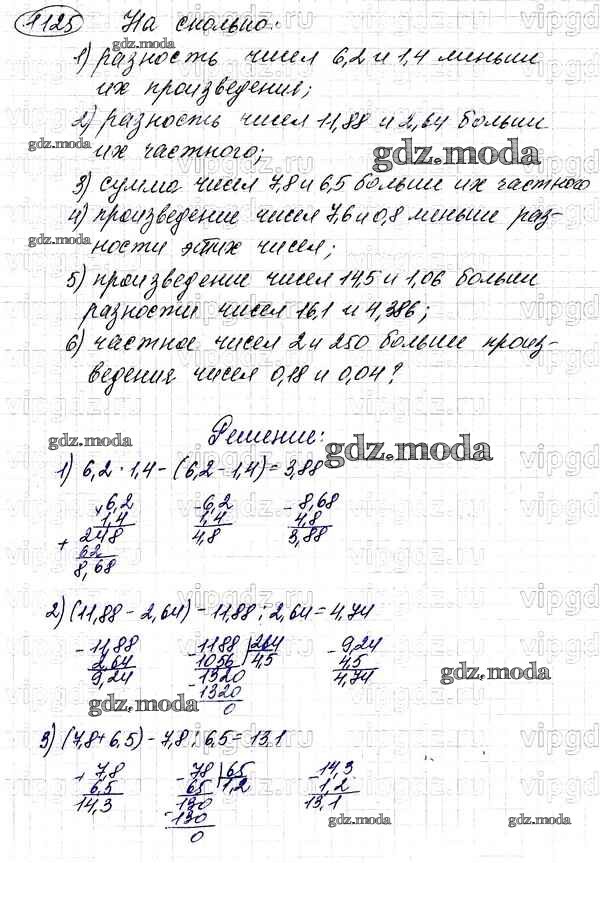 1125 На сколько:
1) разность чисел 6,2 и 1,4 меньше
их произведения;
2) разность чисел 11,88 и 2,64 больше
их частного;
3) сумма чисел 7,8 и 6,5 больше их частного
4) произведение чисел 7,6 и 0,8 меньше раз-
ности этих чисел;
5) произведение чисел 14,5 и 1,06 больше
разности чисел 16,1 и 4,386;
6) частное чисел 2 и 250 больше произ-
ведения чисел 0,18 и 0,04?
Решение:
1) 6,2 · 1,4 - (6,2 - 1,4) = 3,88
× 6,2 - 6,2 - 8,68
1,4 1,4 4,8
+ 248 4,8 3,88
62
8,68
2) (11,88 - 2,64) - 11,88 : 2,64 = 4,74
- 11,88 - 1188 264 - 9,24
2,64 1056 4,5 4,5
9,24 1320 4,74
- 1320
0
3) (7,8 + 6,5) - 7,8 : 6,5 = 13,1
+ 7,8 - 78 65 - 14,3
6,5 65 1,2 1,2
14,3 130 13,1
- 130
0
gdz.moda
gdz.moda
gdz.moda
gdz.moda
gdz.moda
gdz.moda
gdz.moda
gdz.moda
gdz.moda
gdz.moda
gdz.moda
gdz.moda
vipgdz